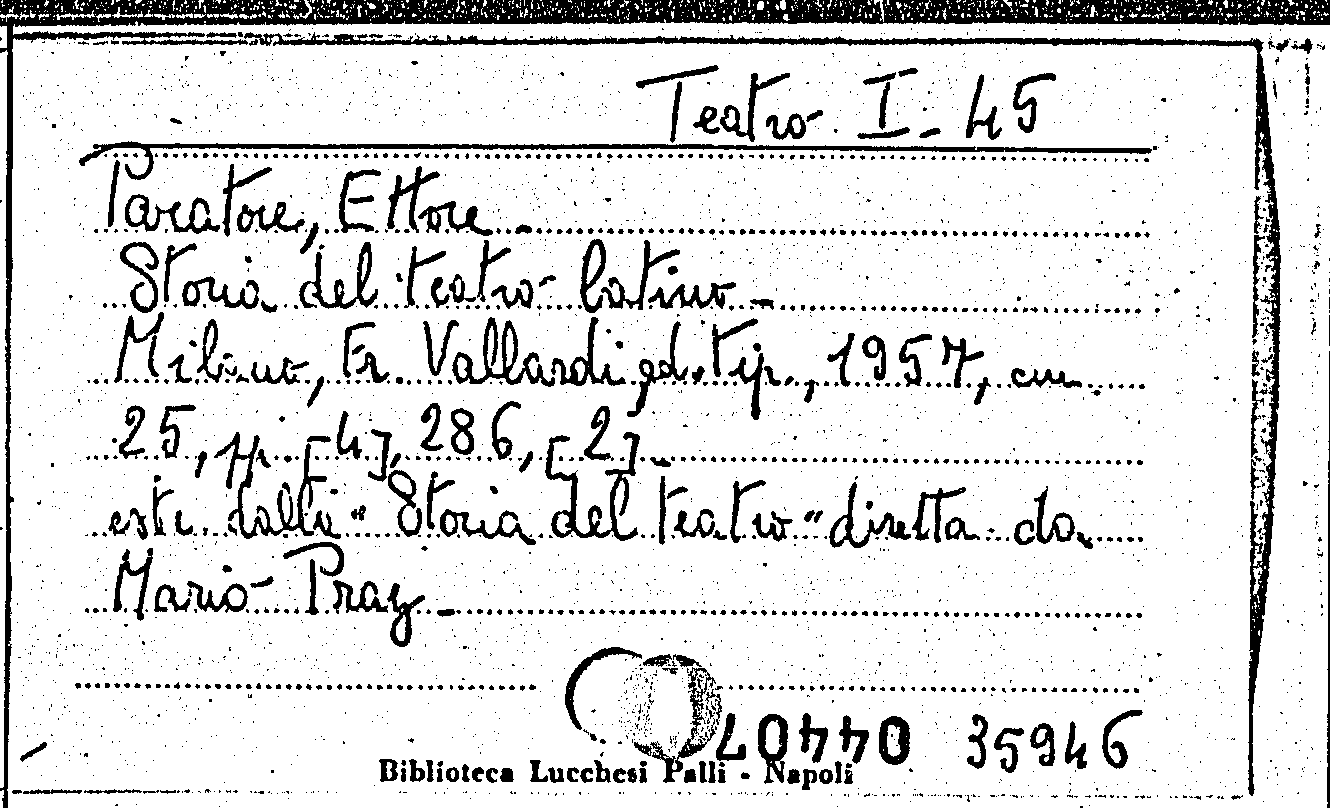 Teatro I - 45
Paratore, Ettore -
Storia del teatro latino -
Milano, Fr. Vallardi ed. tip., 1957, cm
25, pp. [4], 286, [2] -
estr. dalla "Storia del teatro" diretta da
Mario Praz -
04407 35946
Biblioteca Lucchesi Palli - Napoli